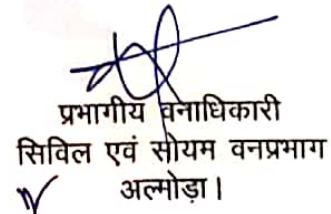 प्रभागीय वनाधिकारी
सिविल एवं सोयम वनप्रभाग
अल्मोड़ा।